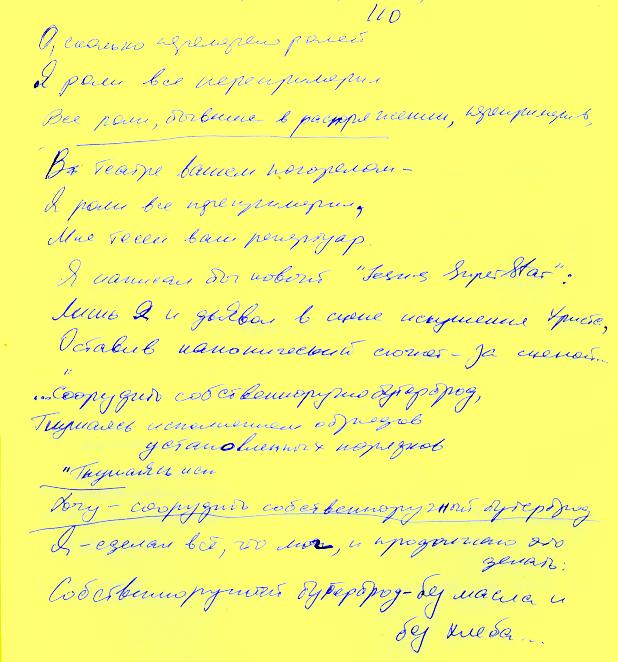 110
О, сколько перемерено ролей
Я роли все перепримерил
Все роли, бывшие в распряжении, перепримерив,
В театре вашем погорелом –
Я роли все перепримерил,
Мне тесен ваш репертуар.
Я написал бы новый "Jesus SuperStar":
Лишь Я и дьЯвол в сцене искушения Христа,
Оставив канонический сюжет – за сценой...
...Соорудить собственноручно бутерброд,
Гнушаясь исполнением обрядов
установленных порядков
"Гнушаясь исп
Хочу – соорудить собственноручный бутерброд
Я – сделал всё, что мог, и продолжаю это
делать:
Собственноручный бутерброд – без масла и
без хлеба...